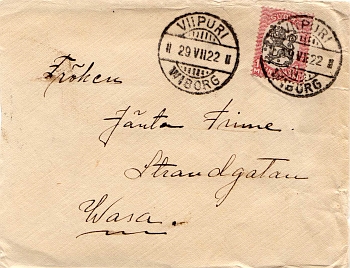 VIIPURI
II 29 VII 22 II
WIBORG
VIIPURI
VII 22 II
WIBORG
Fröken
Strandgatan
Wasa.